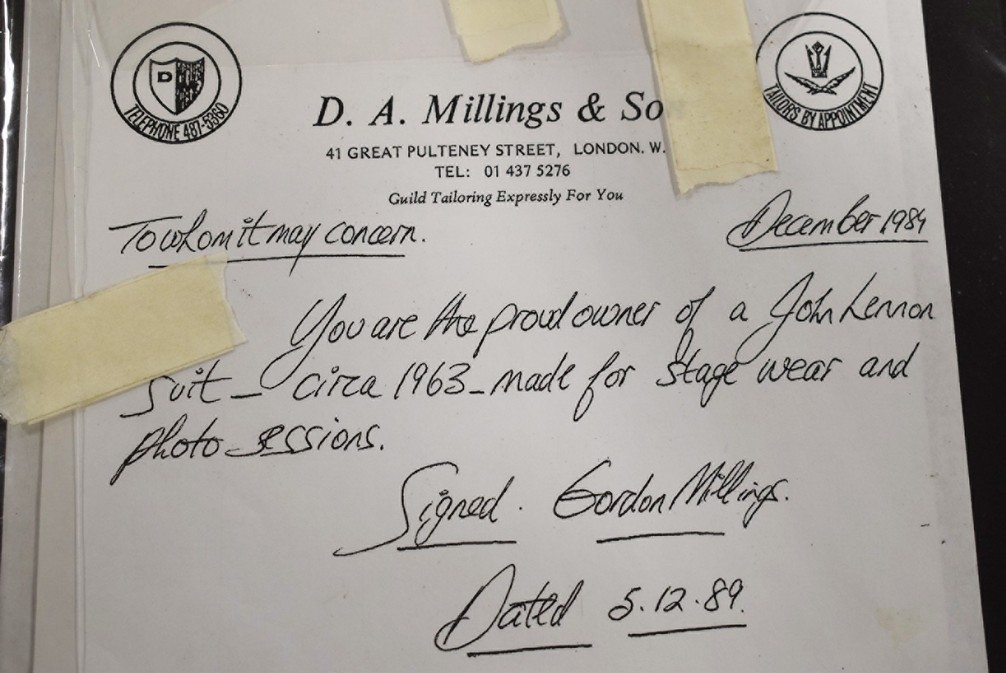 D
TELEPHONE 487-5360
TAILORS BY APPOINTMENT
D. A. Millings & Son
41 GREAT PULTENEY STREET, LONDON. W.
TEL: 01 437 5276
Guild Tailoring Expressly For You
To whom it may concern.
December 1989
You are the proud owner of a John Lennon
Suit - circa 1963 - made for stage wear and
photo sessions.
Signed. Gordon Millings.
Dated 5.12.89.